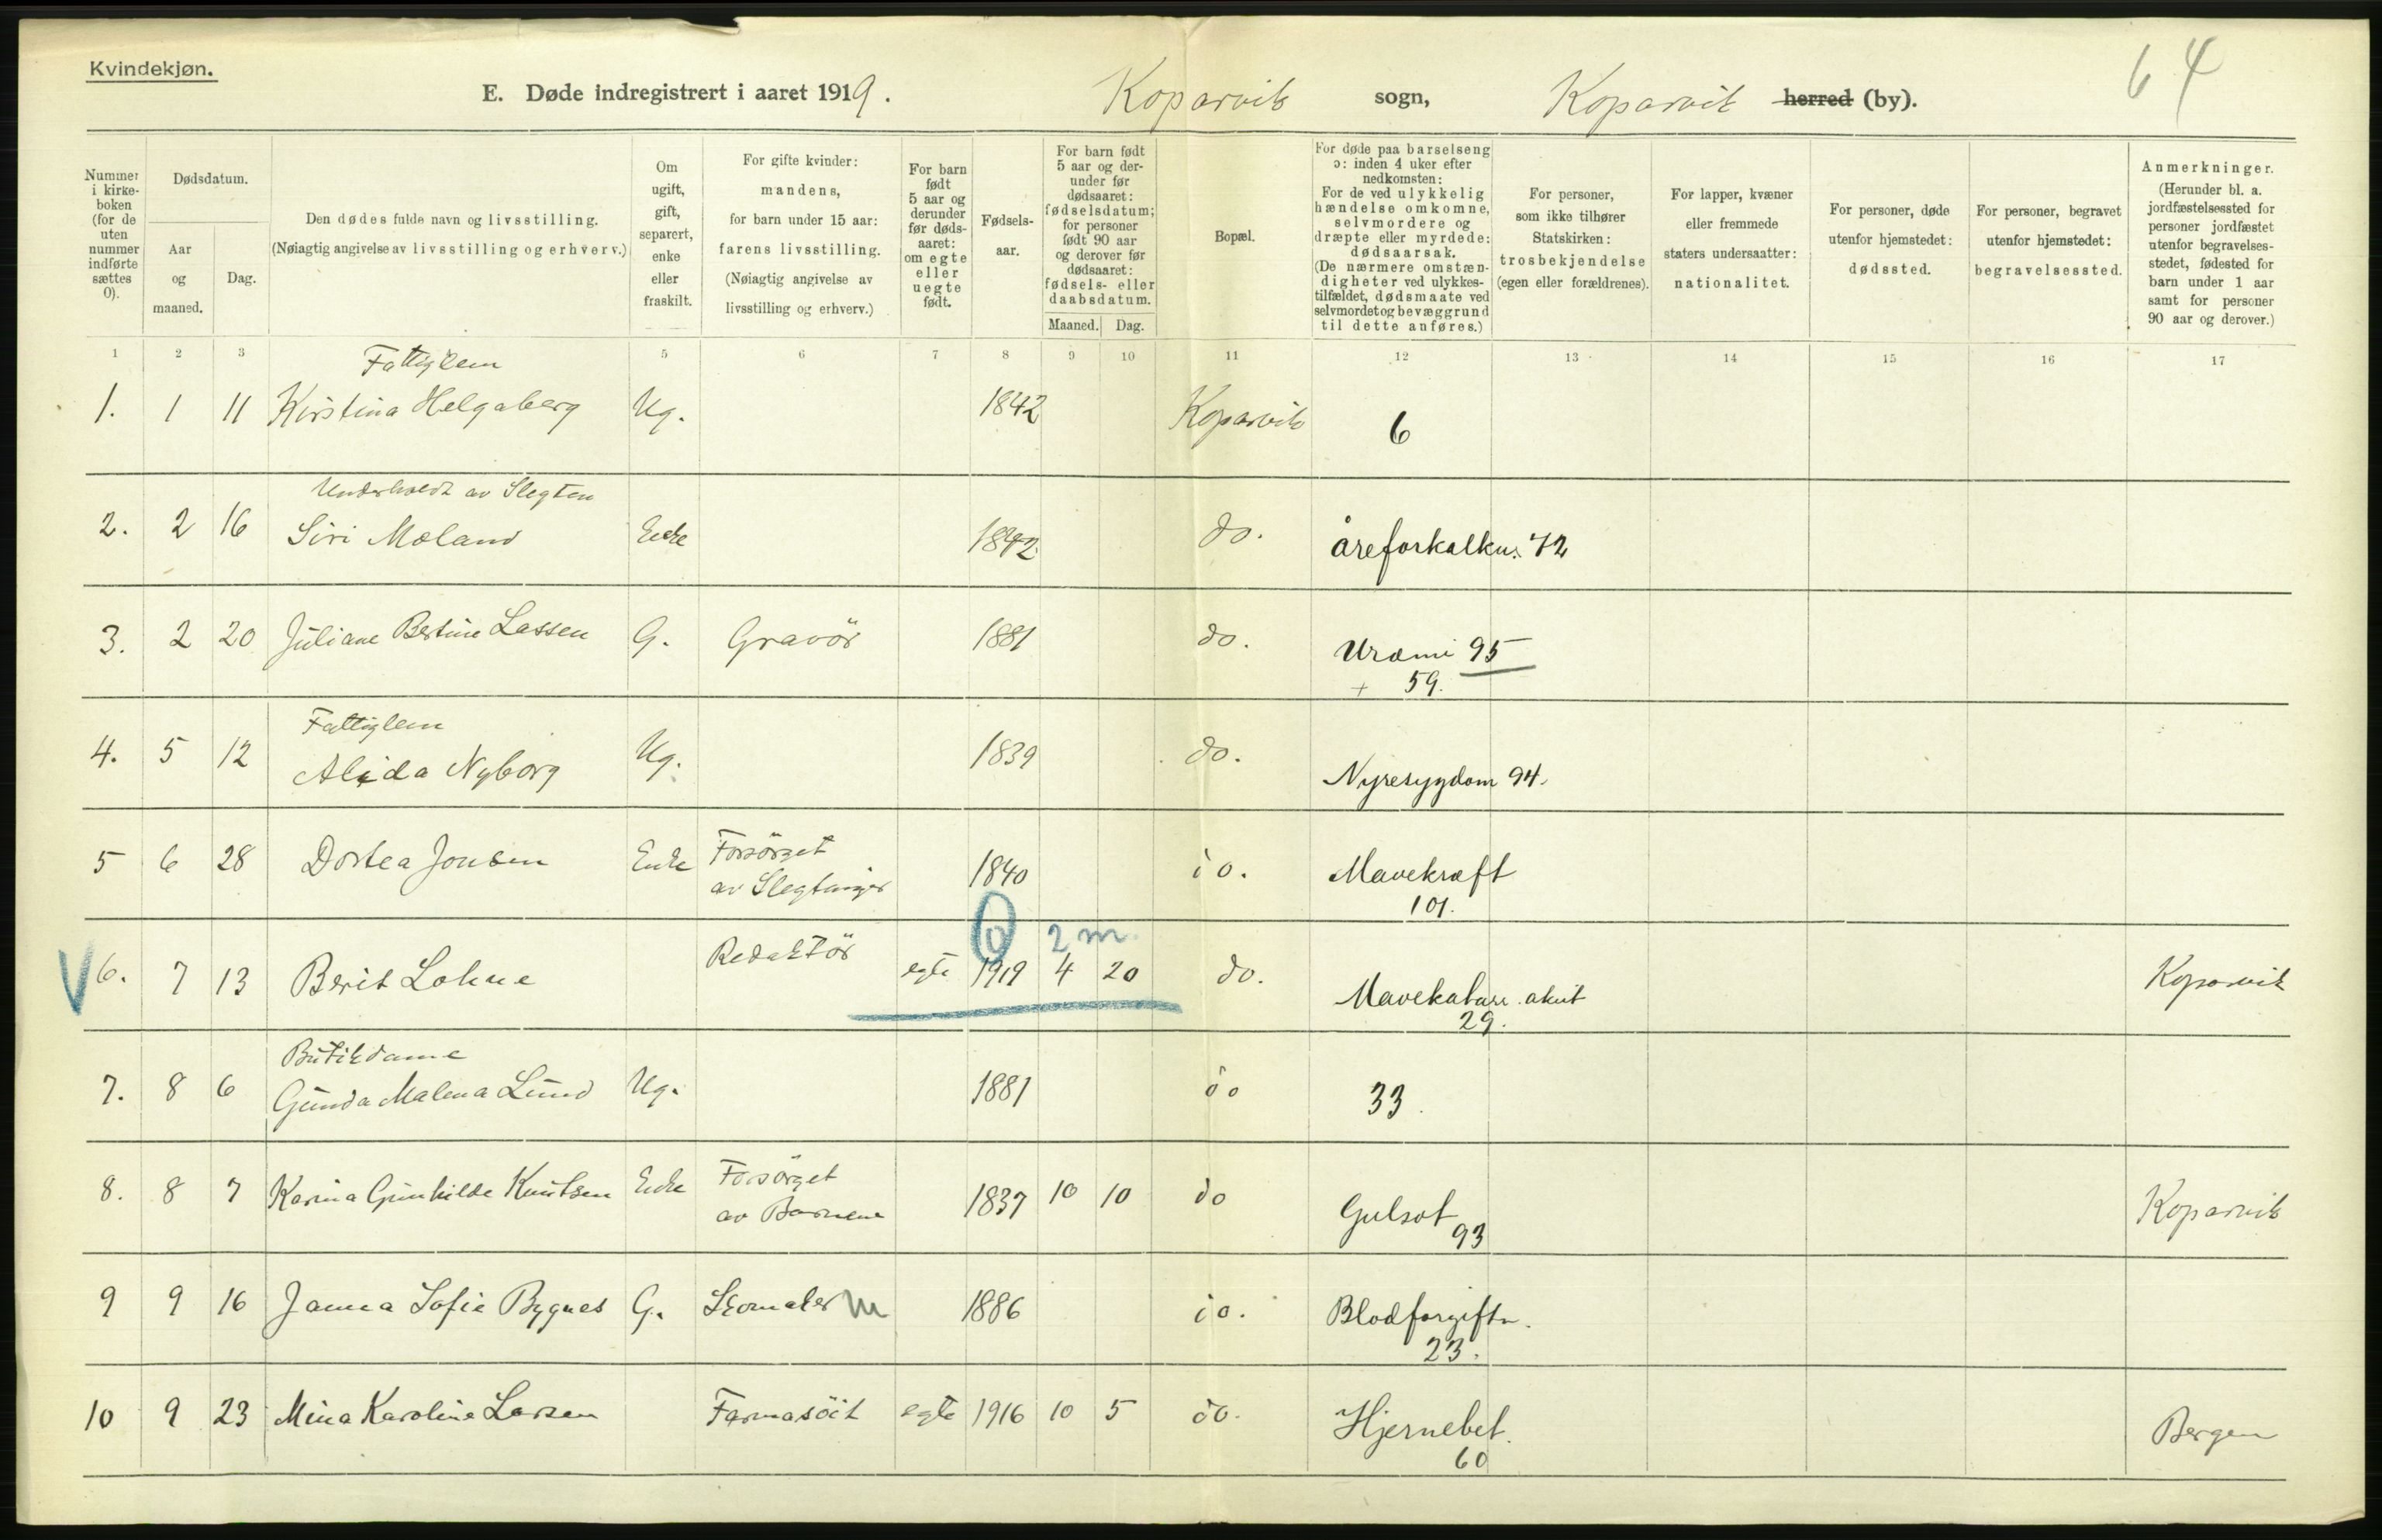 Kvindekjøn.
64
E. Døde indregistrert i aaret 1919. Kopervik sogn, Kopervik herred (by).
Nummer i kirke- boken (for de uten nummer indførte sættes 0).
Dødsdatum.
Aar og maaned.
Dag.
Den dødes fulde navn og livsstilling.
(Nøiagtig angivelse av livsstilling og erhverv.)
Om ugift, gift, separert, enke eller fraskilt.
For gifte kvinder: mandens, for barn under 15 aar: farens livsstilling.
(Nøiagtig angivelse av livsstilling og erhverv.)
For barn født 5 aar og derunder før døds- aaret: om egte eller uegte født.
Fødsels- aar.
For barn født 5 aar og der- under før dødsaaret: fødselsdatum; for personer født 90 aar og derover før dødsaaret: fødsels- eller daabsdatum.
Maaned. Dag.
Bopæl.
For døde paa barselseng ɔ: inden 4 uker efter nedkomsten:
For de ved ulykkelig hændelse omkomne, selvmordere og dræpte eller myrdede: dødsaarsak.
(De nærmere omstæn- digheter ved ulykkes- tilfældet, dødsmaate ved selvmordet og bevæggrund til dette anføres.)
For personer, som ikke tilhører Statskirken: trosbekjendelse (egen eller forældrenes).
For lapper, kvæner eller fremmede staters undersaatter: nationalitet.
For personer, døde utenfor hjemstedet: dødssted.
For personer, begravet utenfor hjemstedet: begravelsessted.
Anmerkninger.
(Herunder bl. a. jordfæstelsessted for personer jordfæstet utenfor begravelses- stedet, fødested for barn under 1 aar samt for personer 90 aar og derover.)
1 2 3 5 6 7 8 9 10 11 12 13 14 15 16 17
Fattiglem
1. 1 11 Kirstina Helgaberg Ug. 1842 Kopervik 6
Underholdt av Slegten
2. 2 16 Siri Moland Enke 1842 do. åreforkalkn. 72
3. 2 20 Juliane Bertine Lassen G. Gravör 1881 do. Uræmi 95
+ 59.
Fattiglem
4. 5 12 Alida Nyborg Ug. 1839 do. Nyresygdom 94.
5 6 28 Dortea Jonsen Enke Forsörget av Slegtninger 1840 do. Mavekræft
101.
0 2 m.
V 6. 7 13 Berit Lohne Redaktör egte 1919 4 20 do. Mavekatarr. akut Kopervik
29.
Butikdame
7. 8 6 Gunda Malena Lund Ug. 1881 do 33.
8. 8 7 Karina Gunhilde Knutsen Enke Forsörget av Barnene 1837 10 10 do Gulsot Kopervik
93
9 9 16 Janna Sofie Bygnes G. Skomaker m 1886 do. Blodforgiftn.
23.
10 9 23 Mina Karoline Larsen Farmasöit egte 1916 10 5 do. Hjernebet. Bergen
60